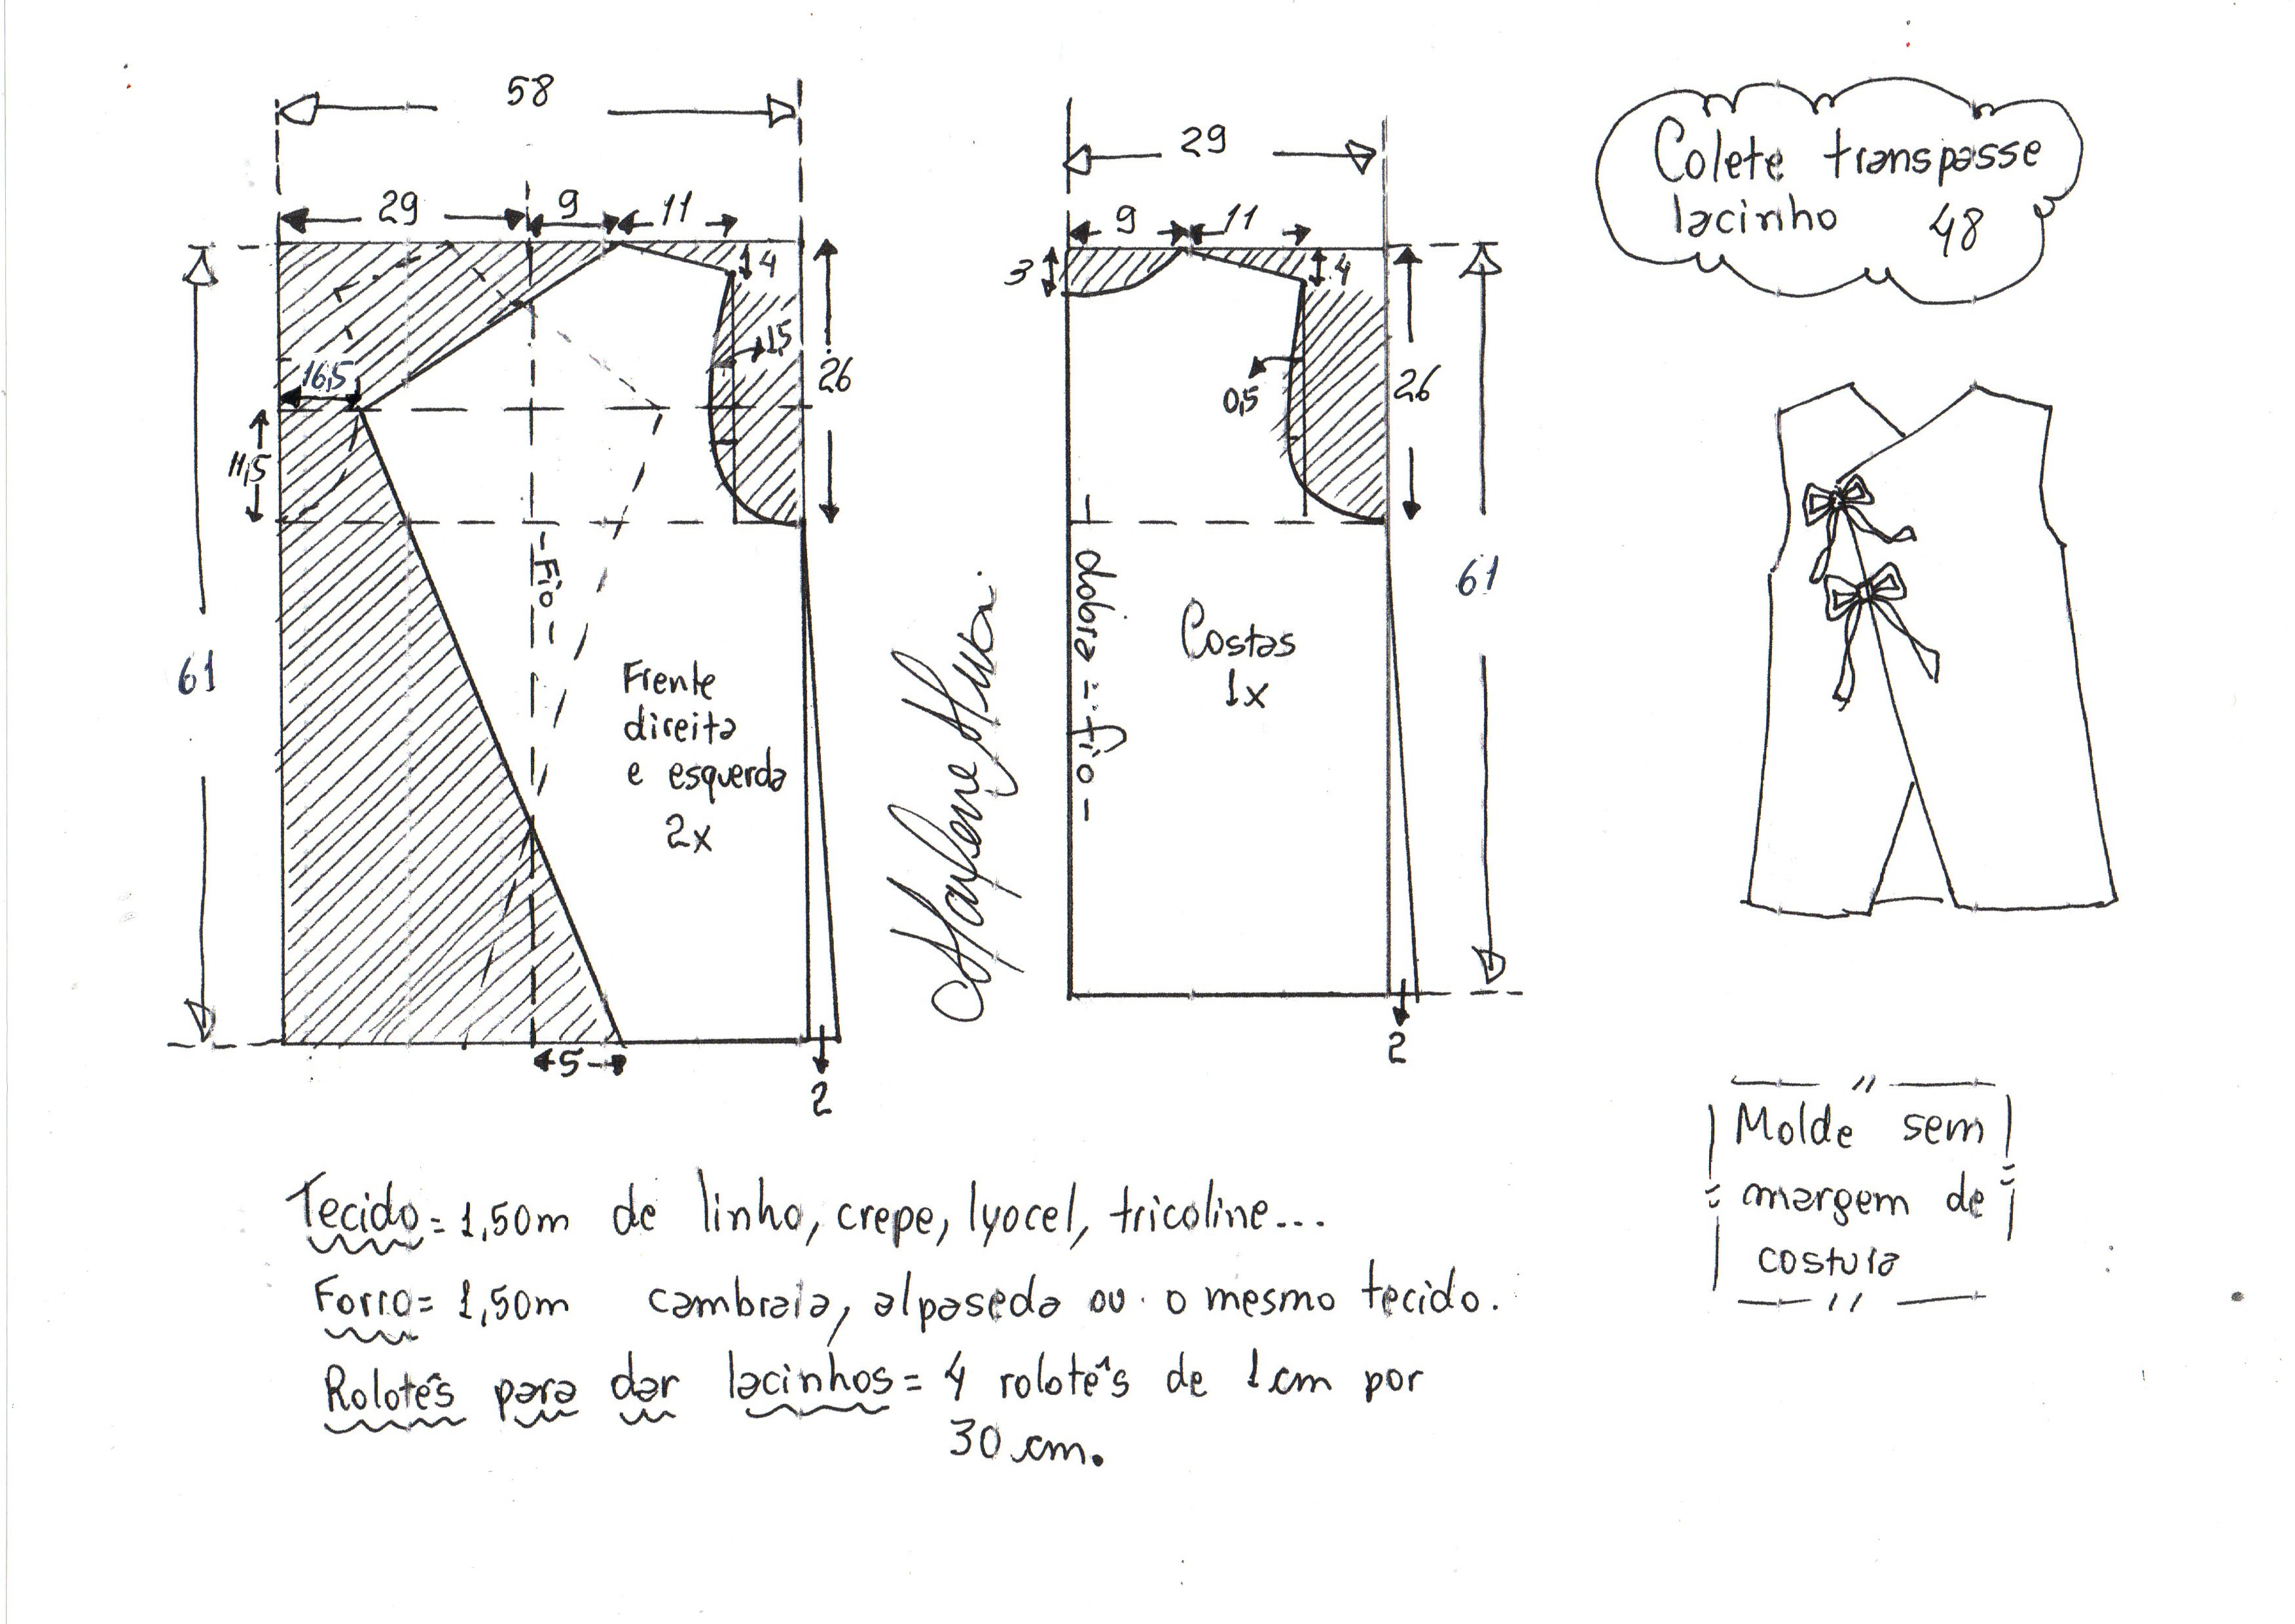 58
29
9
11
4
1,5
26
16,5
11,5
61
-Fio-
Frente
direita
e esquerda
2x
5
2
Marlene Mukai
29
9
11
3
4
0,5
26
61
- dobra = fio -
Costas
1x
2
Colete transpasse
lacinho 48
Molde sem
margem de
costura
Tecido = 1,50m de linho, crepe, lyocel, tricoline...
Forro = 1,50m cambraia, alpaseda ou o mesmo tecido.
Rolotês para dar lacinhos = 4 rolotês de 1 cm por
30 cm.